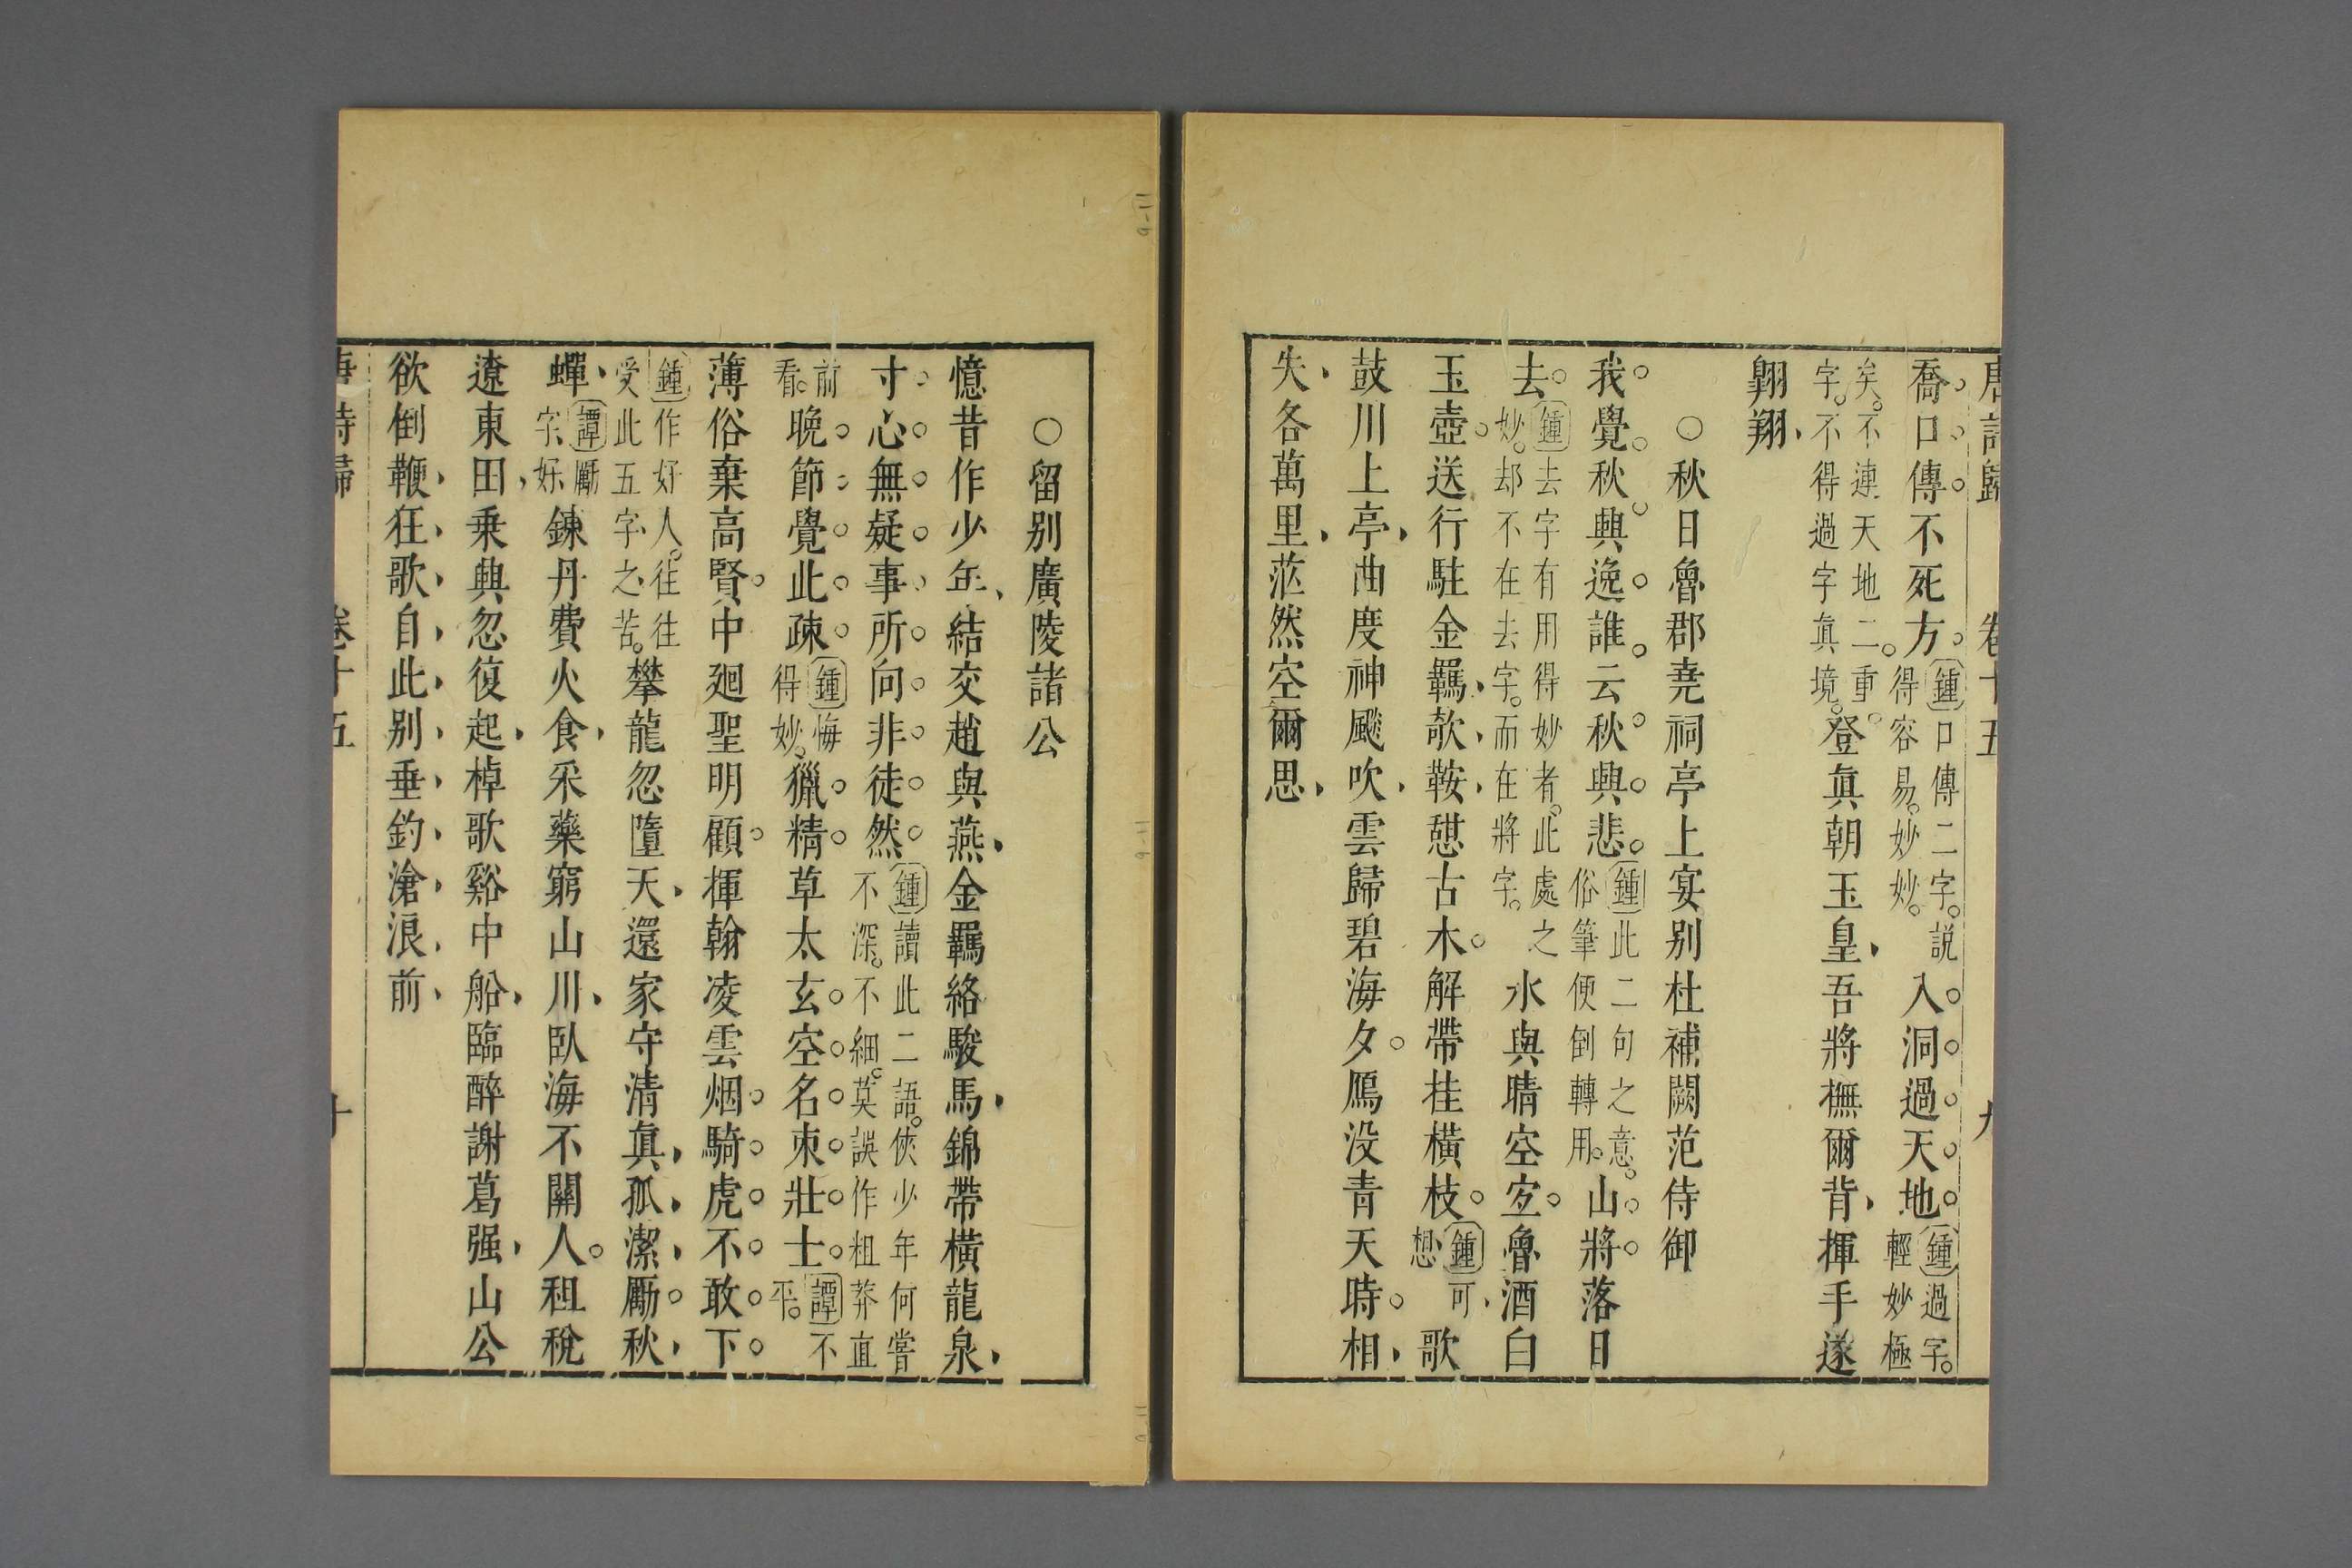 唐詩歸 卷十五 九
喬口傳不死方鍾口傳二字說得容易妙妙入洞過天地鍾過字輕妙極
矣不連天地二重字不得過字眞境登眞朝玉皇吾將撫爾背揮手遂
翺翔
○秋日魯郡堯祠亭上宴别杜補闕范侍御
我覺秋興逸誰云秋興悲鍾此二句之意俗筆便倒轉用山將落日
去鍾去字有用得妙者此處之妙却不在去字而在將字水與晴空宐魯酒白
玉壺送行駐金羈欹鞍憇古木解帶挂橫枝鍾可想歌
鼓川上亭曲度神飈吹雲歸碧海夕鴈没青天時相
失各萬里茫然空爾思
○留别廣陵諸公
憶昔作少年結交趙與燕金羈絡駿馬錦帶橫龍泉
寸心無疑事所向非徒然鍾讀此二語俠少年何嘗不深不細莫誤作粗莽直
前看晚節覺此疎鍾悔得妙獵精草太玄空名束壯士譚不平
薄俗棄高賢中廻聖明顧揮翰凌雲烟騎虎不敢下
鍾作好人往往受此五字之苦攀龍忽墮天還家守清眞孤潔勵秋
蟬譚勵字好鍊丹費火食采藥窮山川臥海不關人租稅
遼東田乘興忽復起棹歌谿中船臨醉謝葛强山公
欲倒鞭狂歌自此别垂釣滄浪前
唐詩歸 卷十五 十